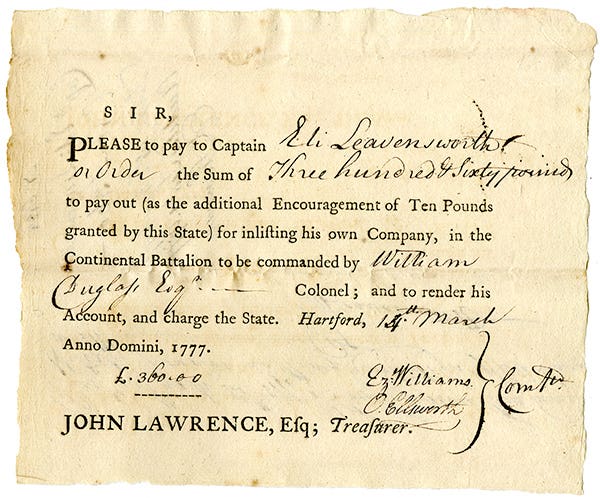 SIR,
PLEASE to pay to Captain Eli Leavensworth
or Order the Sum of Three hundred & Sixty pounds
to pay out (as the additional Encouragement of Ten Pounds
granted by this State) for inlisting his own Company, in the
Continental Battalion to be commanded by William
Duglass Esqr. — Colonel; and to render his
Account, and charge the State. Hartford, 14th March
Anno Domini, 1777.
£.360.00
Ez. Williams
O. Ellsworth
Comtee.
JOHN LAWRENCE, Esq; Treasurer.